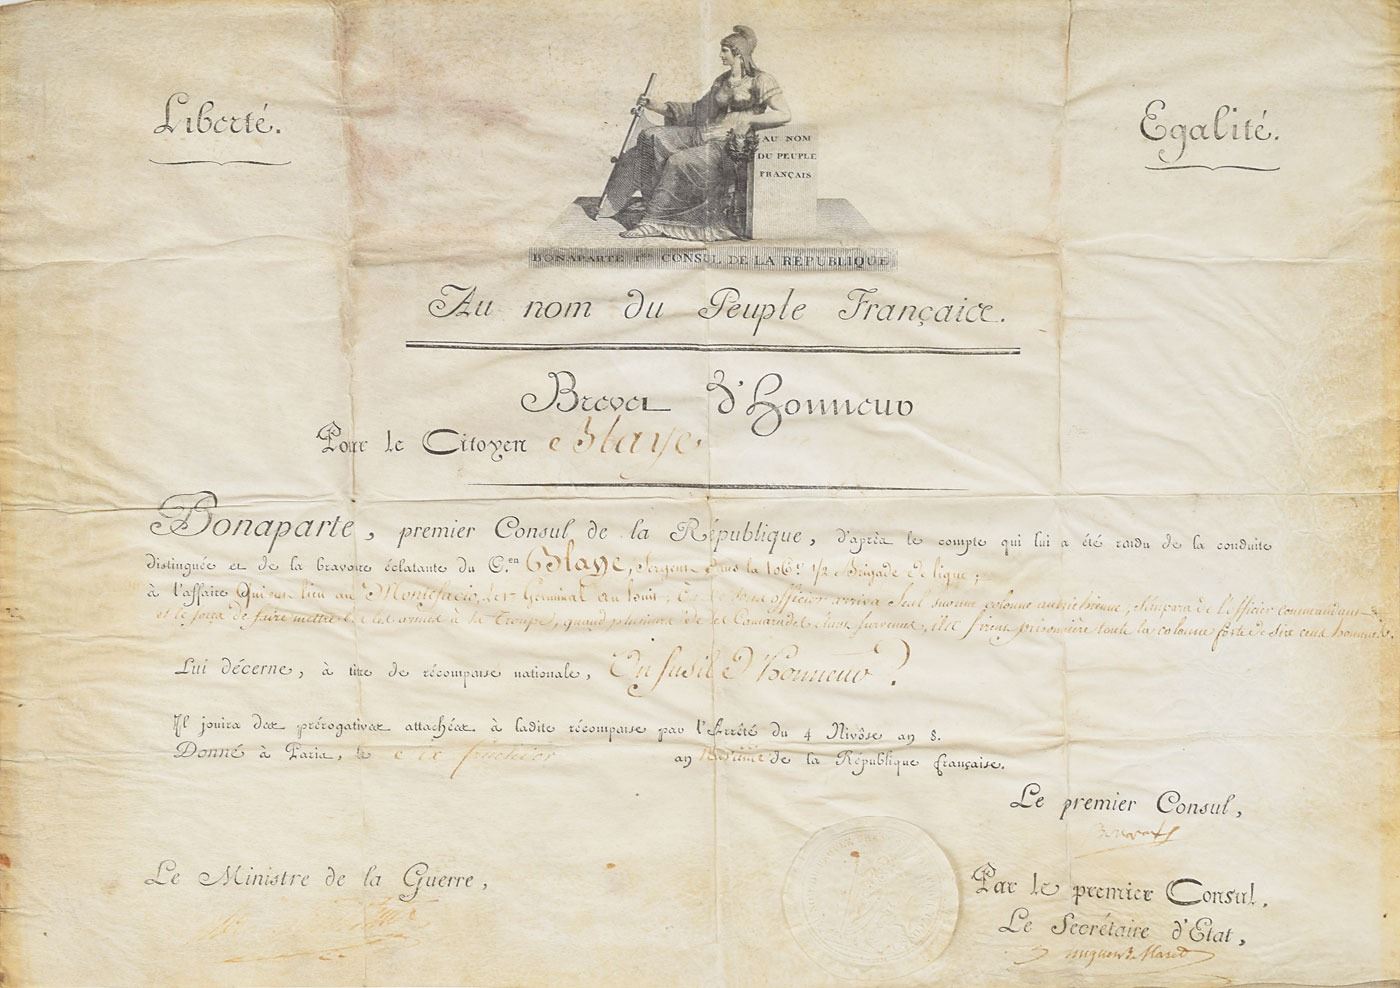 Liberté.
Egalité.
AU NOM
DU PEUPLE
FRANÇAIS
BONAPARTE 1er CONSUL DE LA REPUBLIQUE
Au nom du Peuple Français.
Brevet d'Honneur
Pour le Citoyen Blaye
Bonaparte, premier Consul de la République, d'après le compte qui lui a été rendu de la conduite
distinguée et de la bravoure éclatante du C.en Blaye, Sergent dans la 106.e 1/2 Brigade de ligne;
à l'affaire Qui eut lieu au Montefacio, le Germinal an huit; Ce sous officier arriva Seul sur une colonne autrichienne, S'empara de l'officier commandant
et le força de faire mettre bas les armes à sa Troupe, quand plusieurs de ses Camarades étant Survenus, ils firent prisonnière toute la colonne forte de Six cents hommes.
Lui décerne, à titre de récompense nationale, Un fusil d'honneur.
Il jouira des prérogatives attachées à ladite récompense par l'Arrêté du 4 Nivôse an 8.
Donné à Paris, le fructidor an de la République française.
Le premier Consul,
Bonaparte
Le Ministre de la Guerre,
Par le premier Consul.
Le Secrétaire d'Etat,
hugues B. Maret